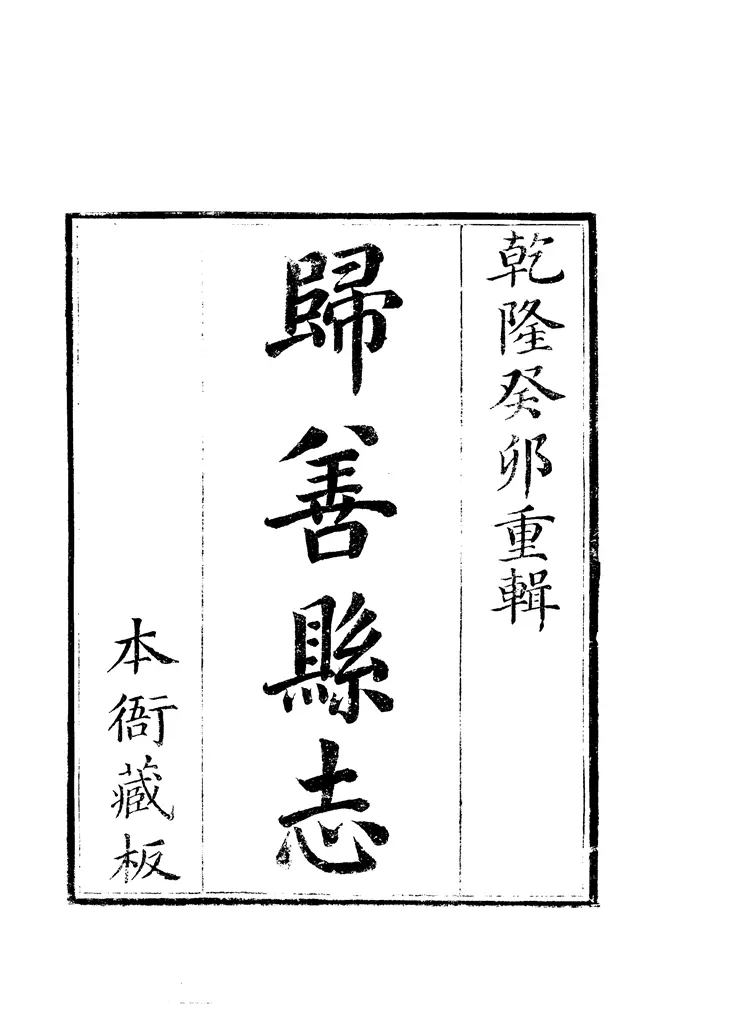 乾隆癸卯重輯
歸善縣志
本衙藏板